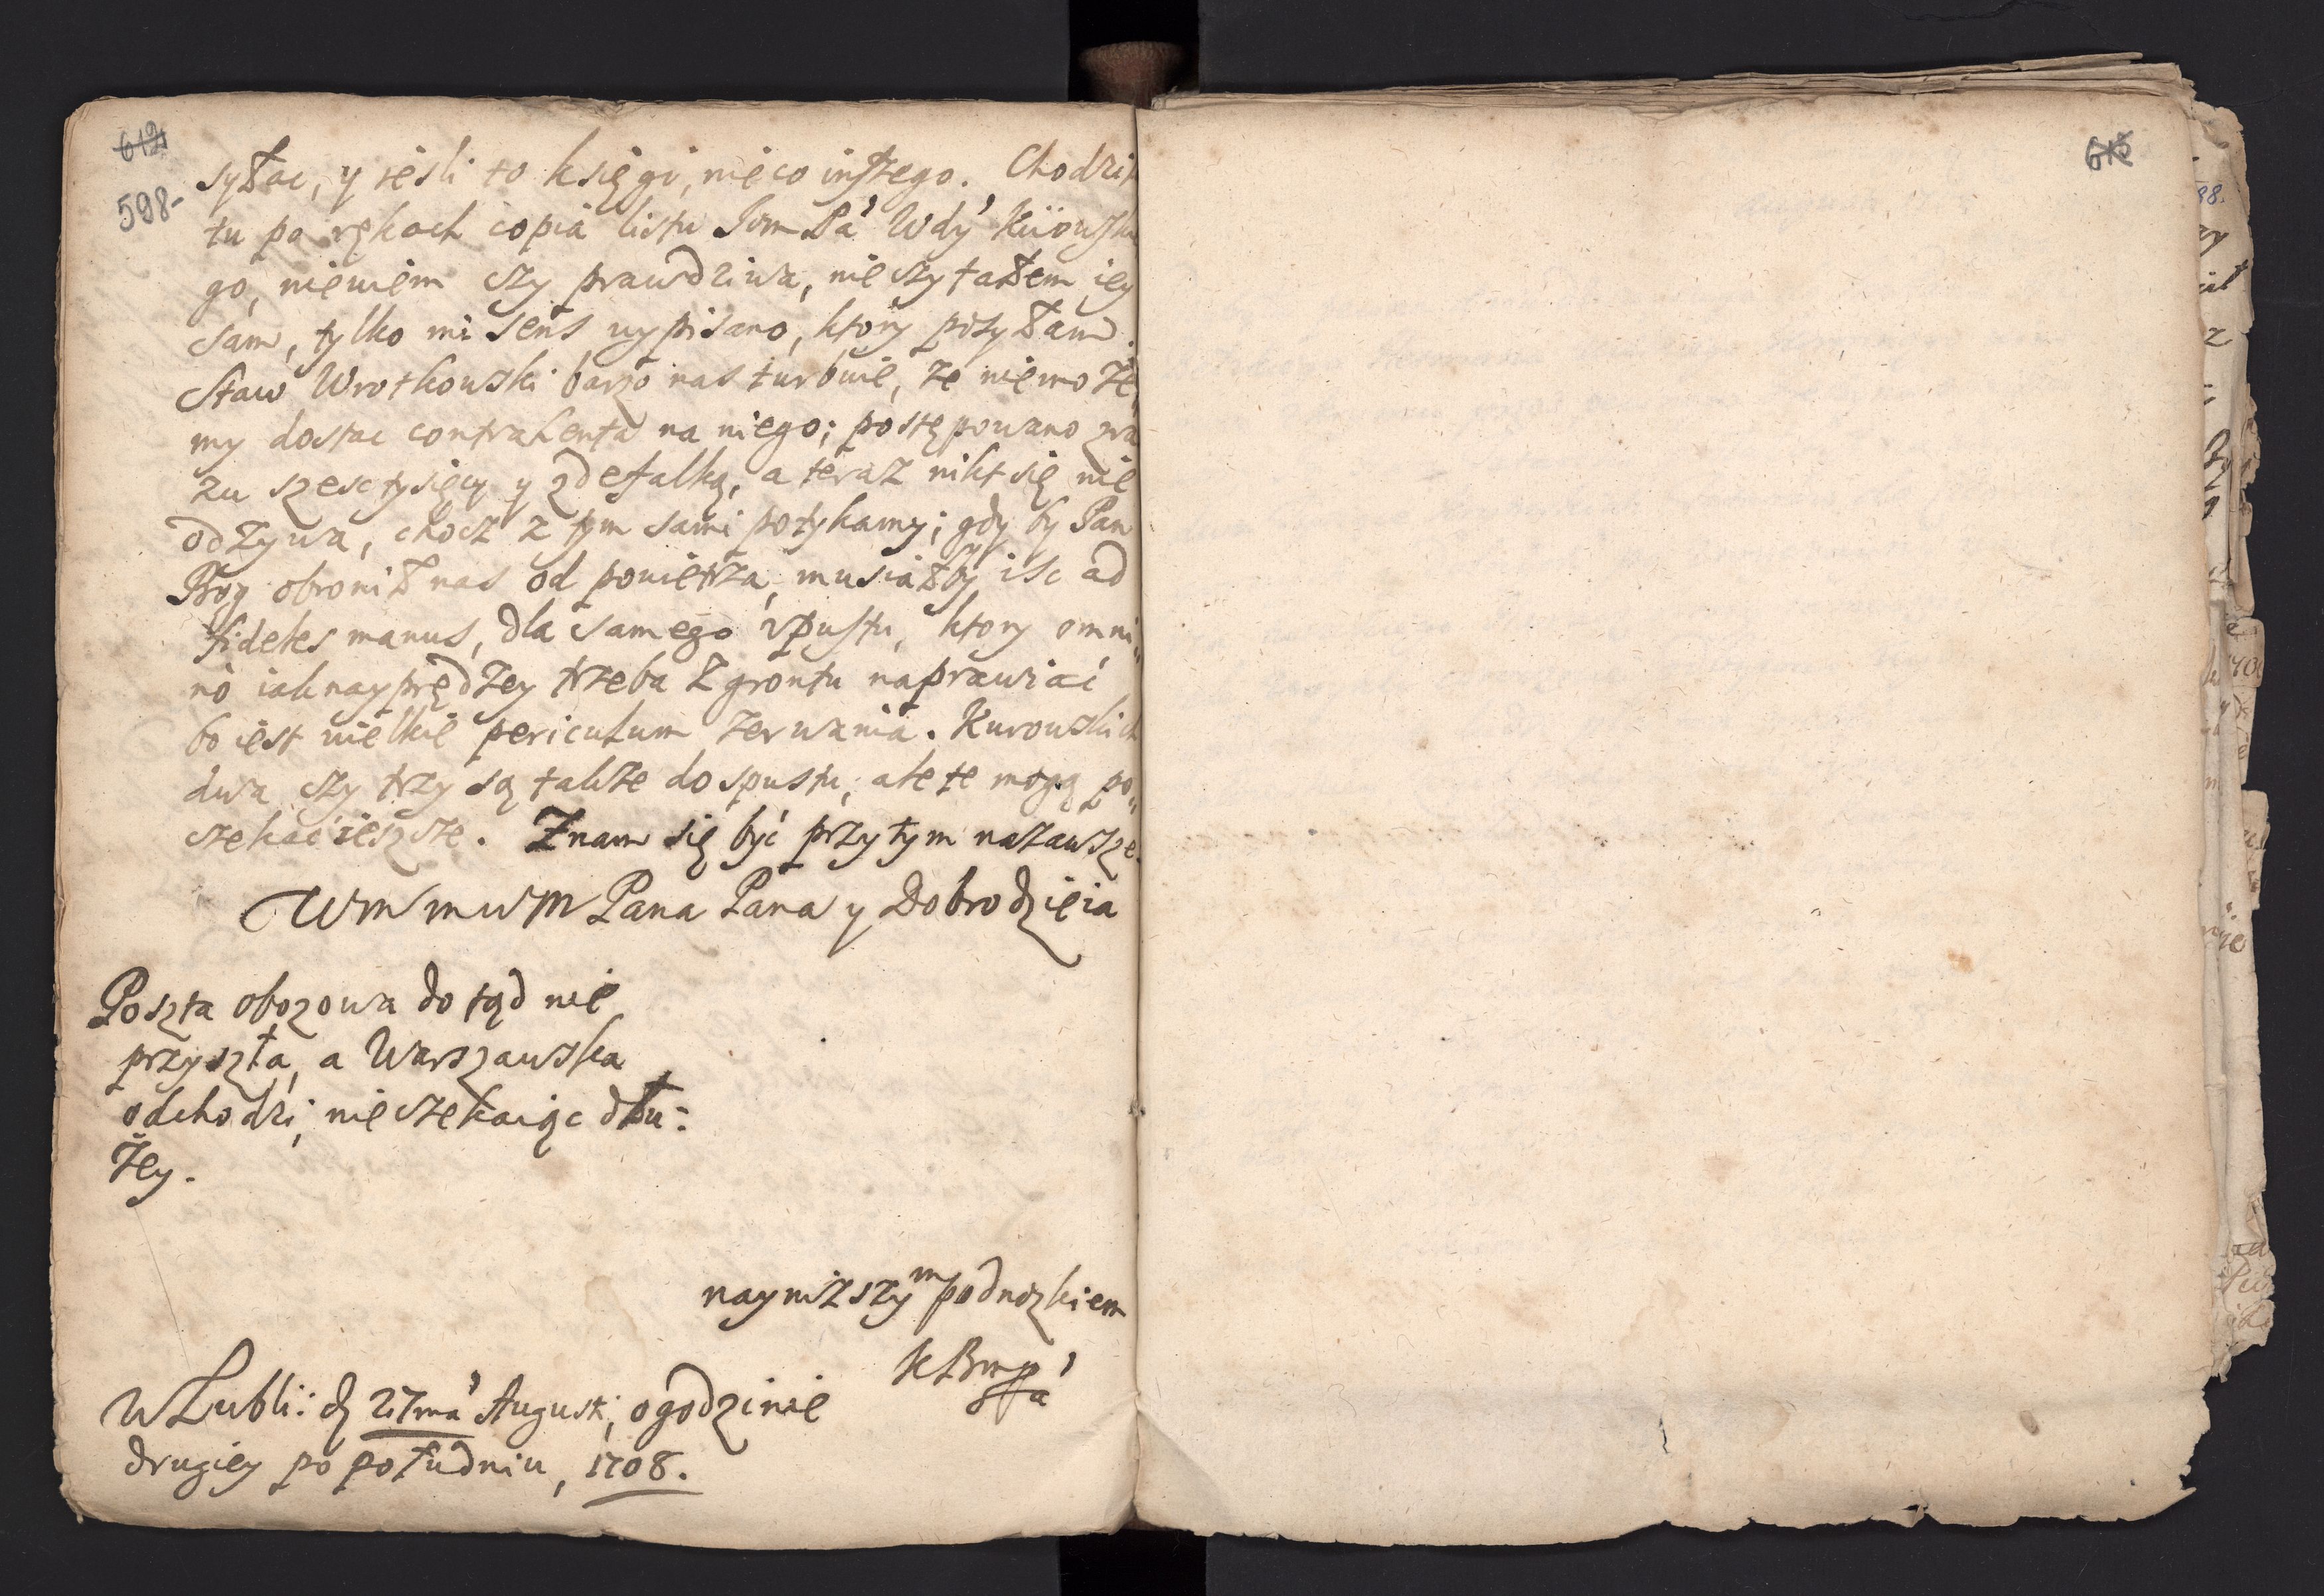 612
598-
syłac, y iesli to księgi, nie co inszego. Chodzi
tu po rękach copia listu Jom Pa Wdy Kiiowskie
go, niewiem czy prawdziwa, nie czytałem iey
sam, tylko mi sens wypisano, ktory posyłam.
Staw Wrotkowski barzo nas turbuie, że niemoże„
my dostac contrahenta na niego; postępowano zra
zu szesc tysięcy y z defalką, a teraz nikt się nie
odzywa, chocz z tym sami potykamy; gdy by Pan
Bog obronił nas od powietrza, musiałby isc ad
fideles manus, dla samego vpustu, ktory omni„
no iak nayprędzey trzeba z grontu naprawiać
bo iest wielkie periculum zerwania. Kurowskich
dwa czy trzy są także do spustu, ale te mogą po„
czekać ieszcze. Znam się być przy tym nazawsze.
WmmwM Pana Pana y Dobrodzieia
Poszta obozowa do tąd nie
przyszła, a Warszawska
odchodzi, nie czekaiąc dłu:
żey.
nayniższym podnożkiem
KBmpa
W Lubli: d 27ma August; o godzinie
drugiey po południu, 1708.
615
88.